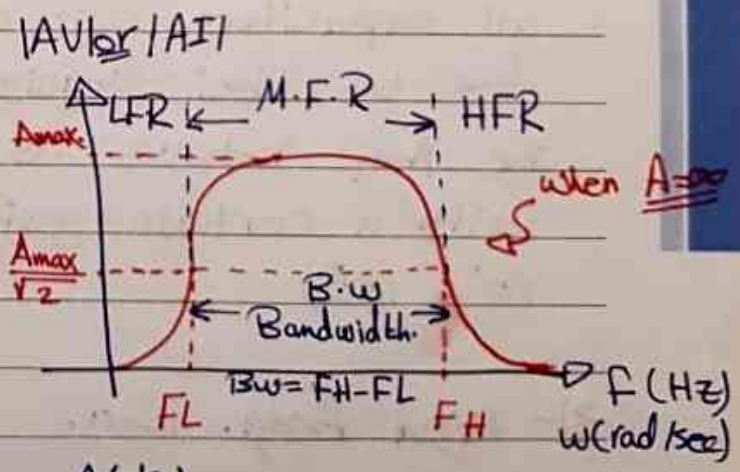 |AV|or |AI|
LFR M.F.R HFR
Amax.
when A=∞
Amax
√2
B.w
Bandwidth.
Bw= FH-FL
FL FH
f (Hz)
w(rad/sec)